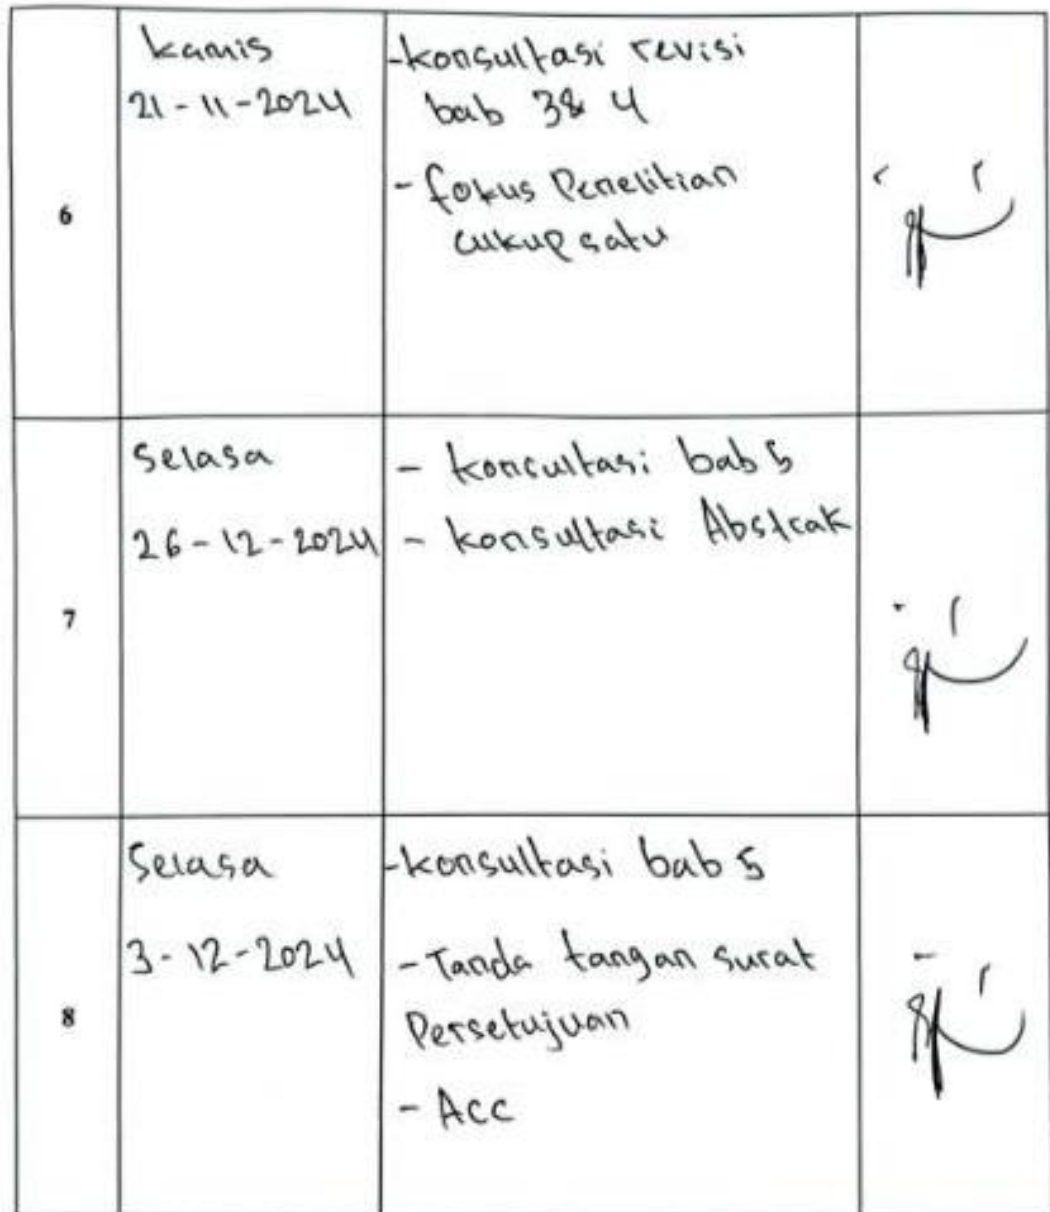 6
kamis
21-11-2024
-konsultasi revisi
bab 3& 4
- fokus Penelitian
cukup satu
7
Selasa
26-12-2024
- konsultasi bab 5
- konsultasi Abstrak
8
Selasa
3-12-2024
-konsultasi bab 5
-Tanda tangan surat
Persetujuan
- Acc